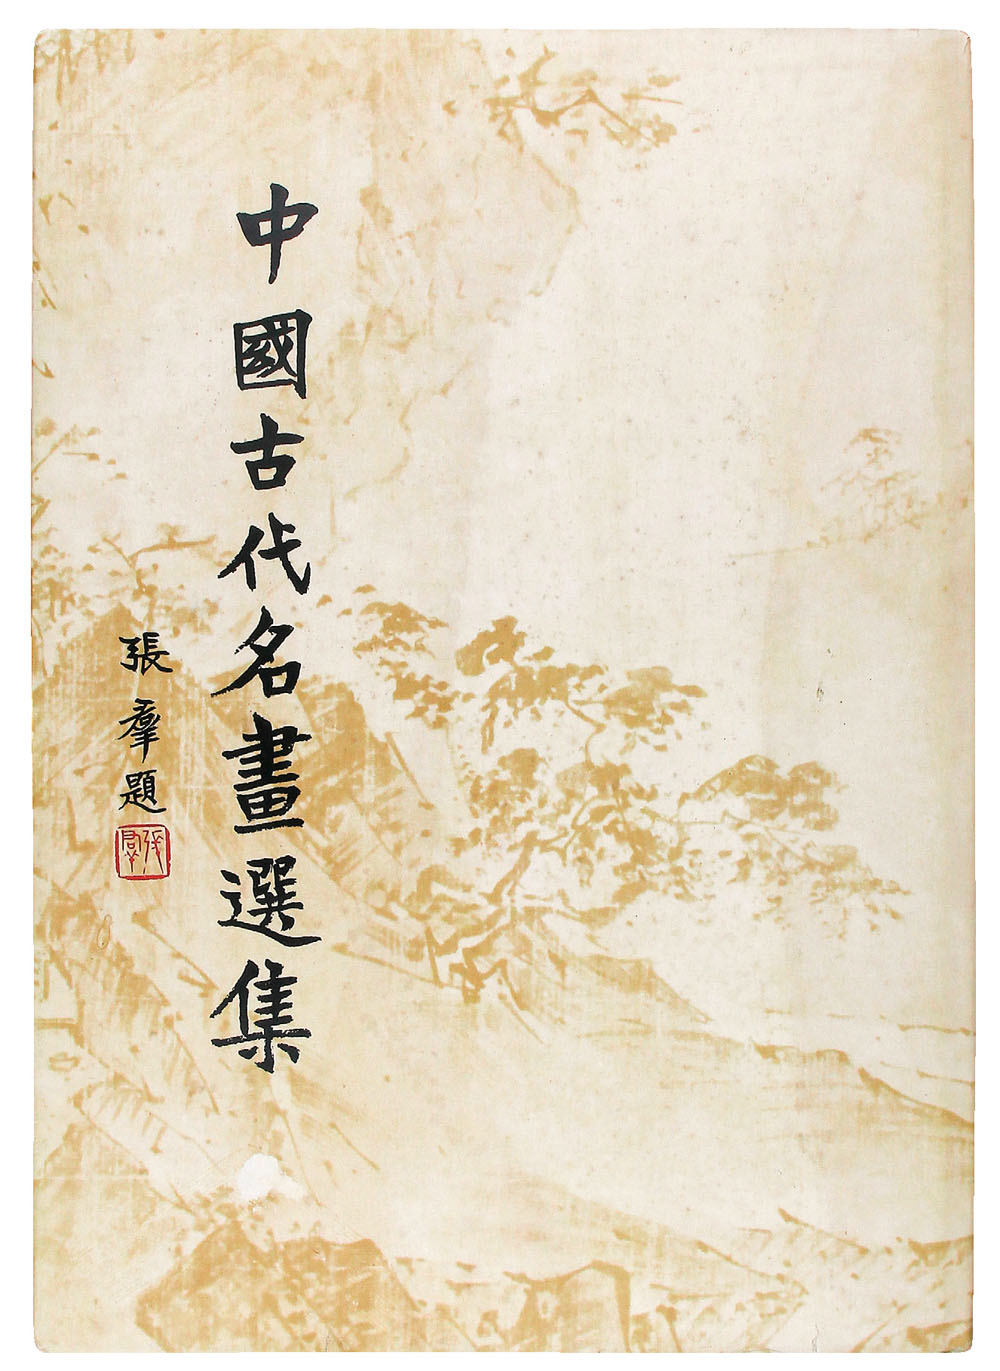 中國古代名畫選集
張羣題
張羣